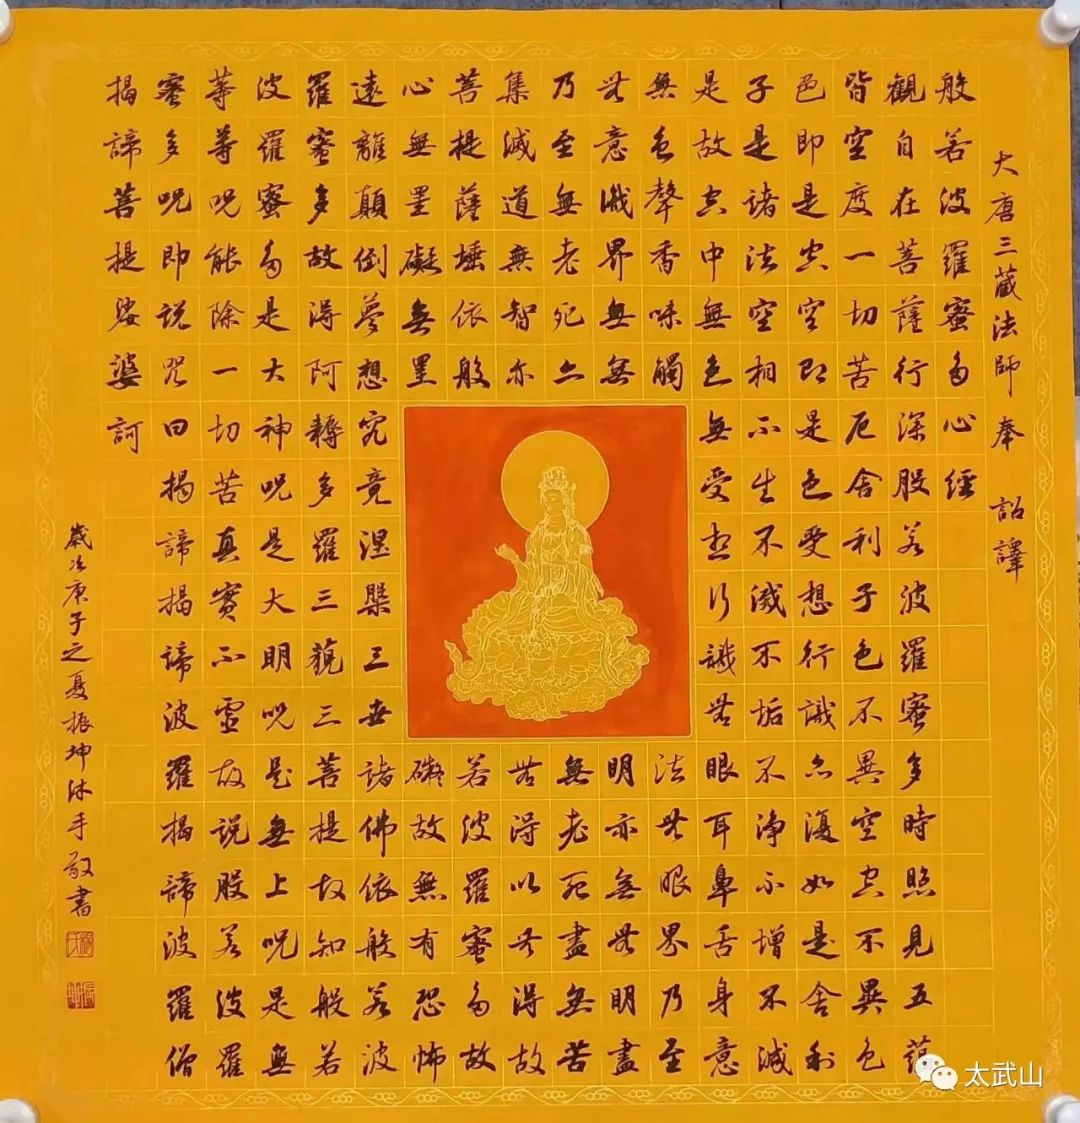 大唐三藏法師奉 詔譯
般若波羅蜜多心經
觀自在菩薩行深般若波羅蜜多時照見五蘊
皆空度一切苦厄舍利子色不異空空不異色
色即是空空即是色受想行識亦復如是舍利
子是諸法空相不生不滅不垢不淨不增不減
是故空中無色無受想行識無眼耳鼻舌身意
無色聲香味觸法無眼界乃至
無意識界無無明亦無無明盡
乃至無老死亦無老死盡無苦
集滅道無智亦無得以無得故
菩提薩埵依般若波羅蜜多故
心無罣礙無罣礙故無有恐怖
遠離顛倒夢想究竟涅槃三世諸佛依般若波
羅蜜多故得阿耨多羅三藐三菩提故知般若
波羅蜜多是大神呪是大明呪是無上呪是無
等等呪能除一切苦真實不虛故說般若波羅
蜜多呪即說咒曰揭諦揭諦波羅揭諦波羅僧
揭諦菩提娑婆訶
歲次庚子之夏振坤沐手敬書
太武山